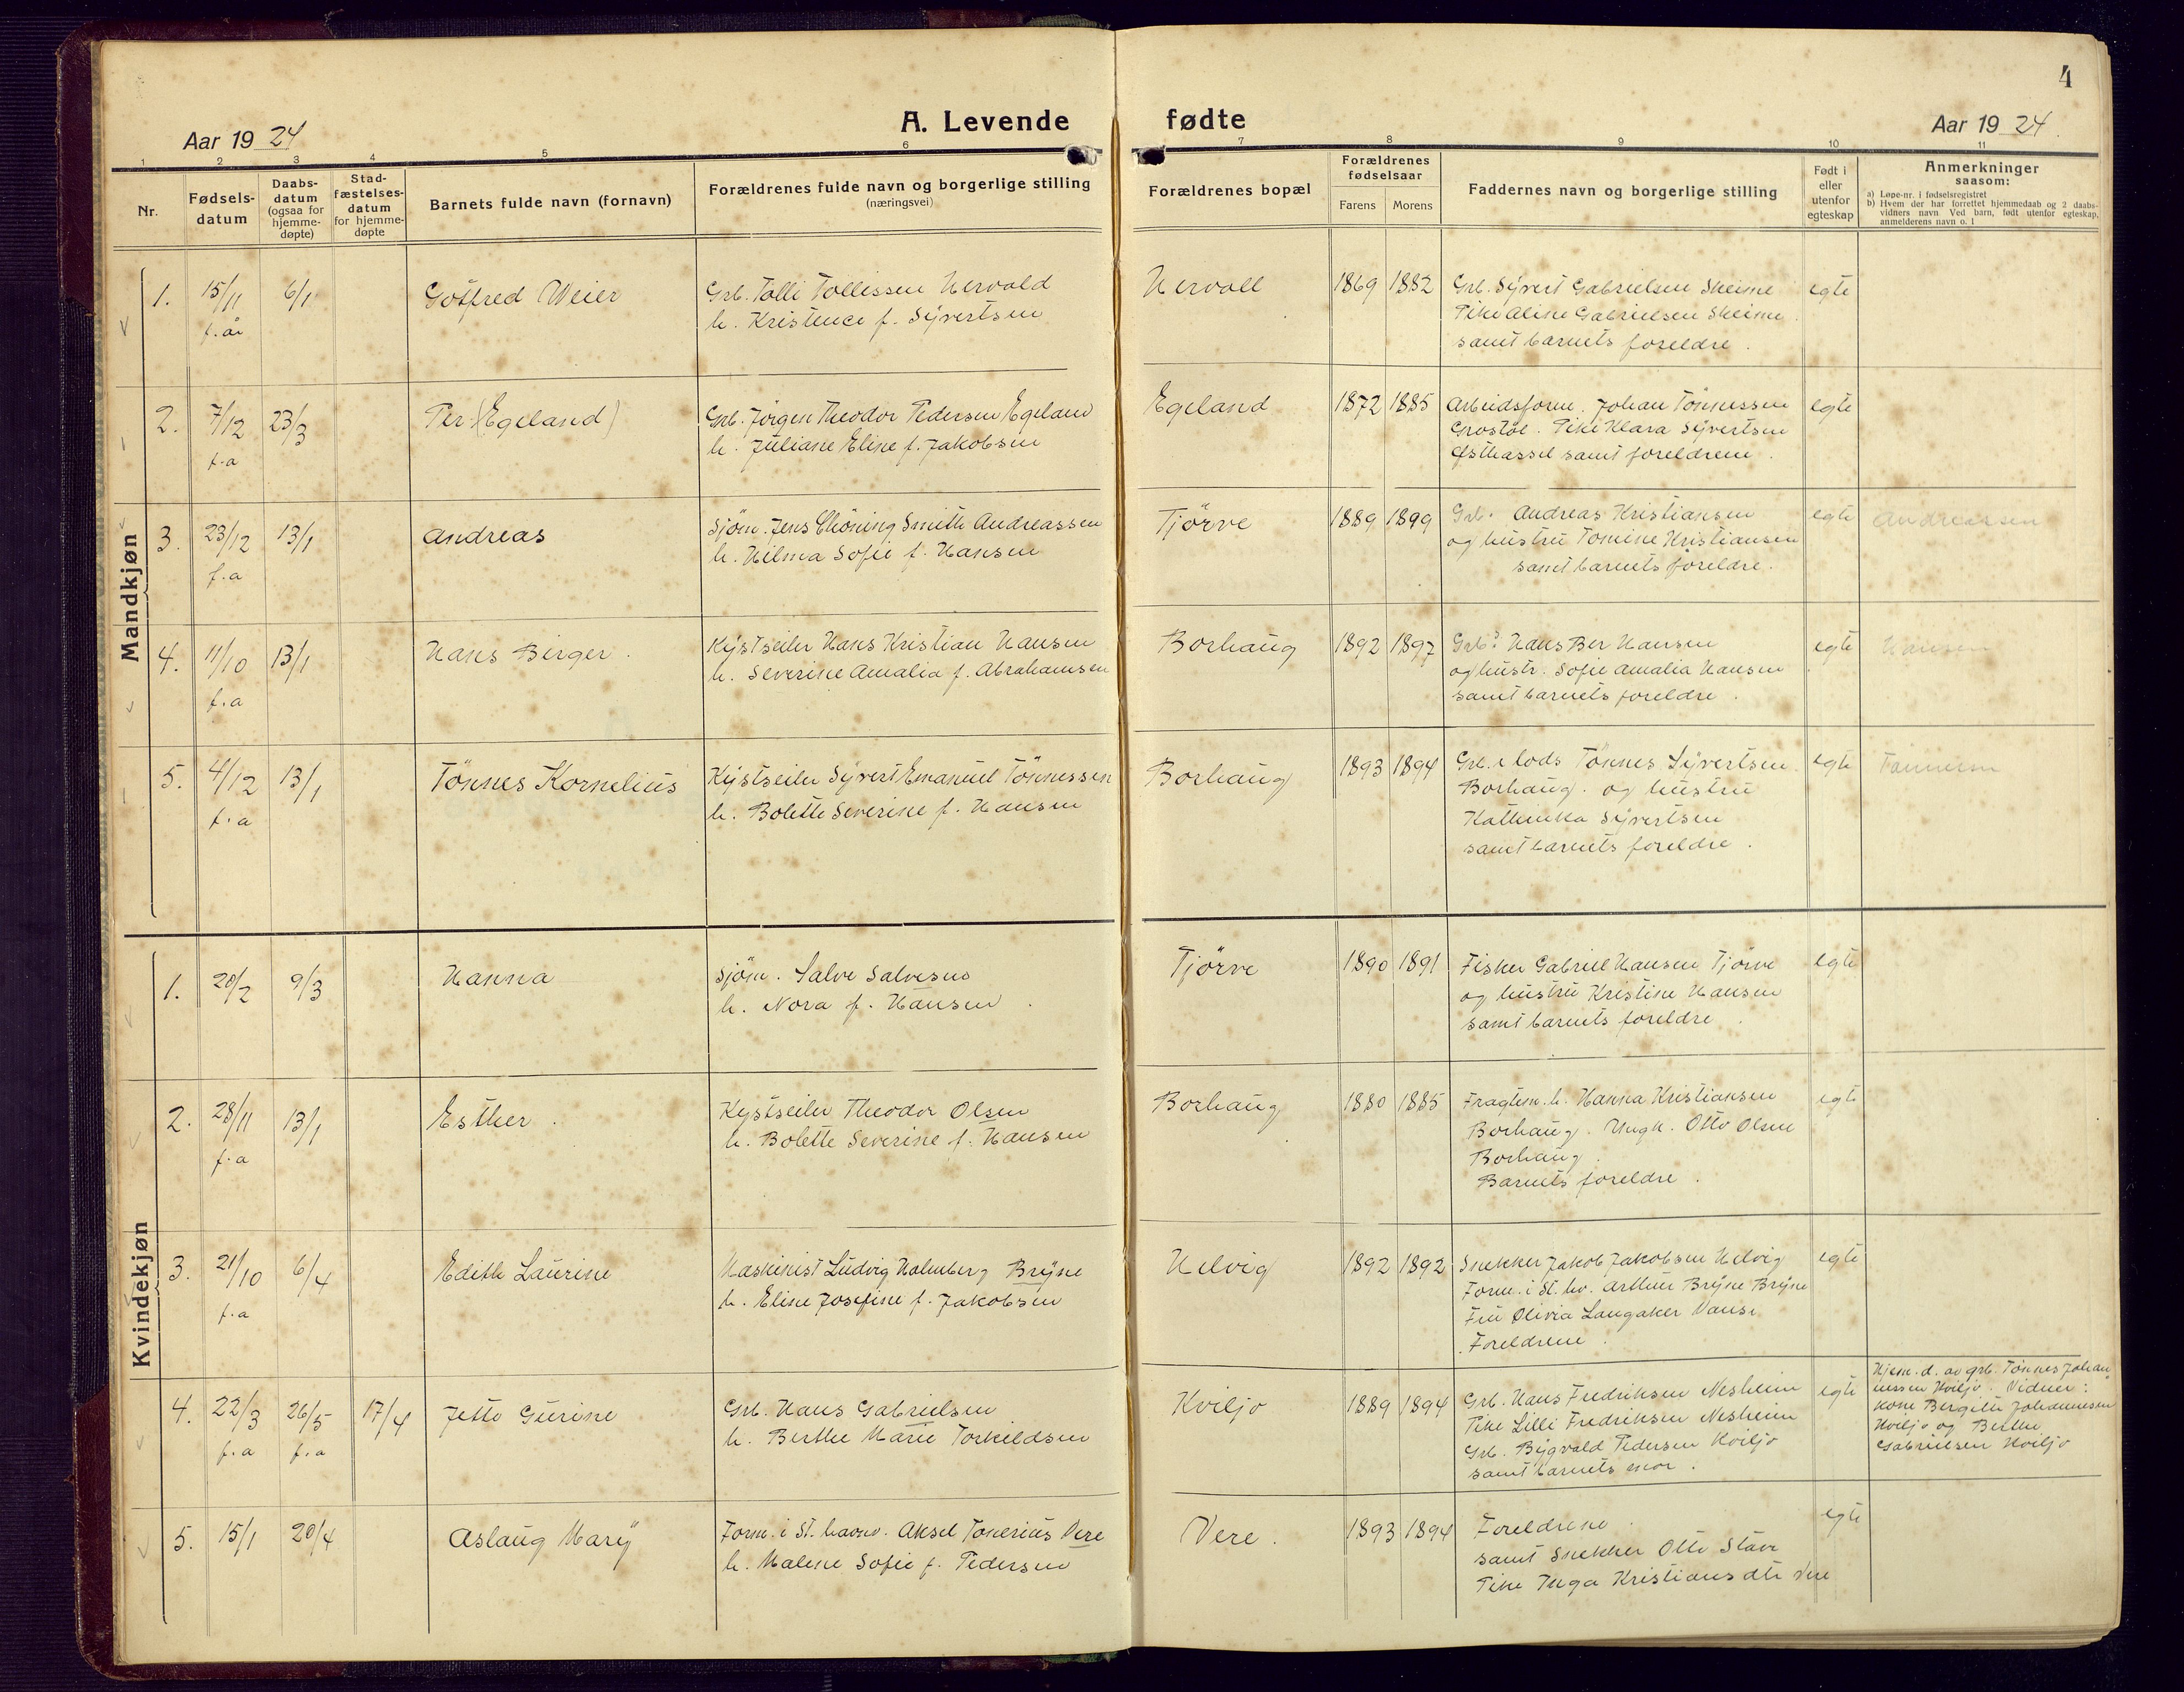 4
A. Levende fødte
Aar 19 24
Aar 19 24.
1 2 3 4 5 6 7 8 9 10 11
Nr.
Fødsels-
datum
Daabs-
datum
(ogsaa for
hjemme-
døpte)
Stad-
fæstelses-
datum
for hjemme-
døpte
Barnets fulde navn (fornavn)
Forældrenes fulde navn og borgerlige stilling
(næringsvei)
Forældrenes bopæl
Forældrenes
fødselsaar
Farens Morens
Faddernes navn og borgerlige stilling
Født i
eller
utenfor
egteskap
Anmerkninger
saasom:
a) Løpe-nr. i fødselsregistret
b) Hvem der har forrettet hjemmedaab og 2 daabs-
vidners navn. Ved barn, født utenfor egteskap,
anmelderens navn o. l
Mandkjøn
1. 15/11 f. år 6/1
Gotfred Meier
Grb. Tolli Tollissen Hervold
h. Kristence f. Syvertsen
Hervoll
1869 1882
Grb. Syvert Gabrielsen Skeime
Pike Aline Gabrielsen Skeime.
samt barnets foreldre.
egte
2. 7/12 f.a 23/3
Per (Egeland)
Grb. Jörgen Theodor Pedersen Egeland
h. Juliane Eline f. Jakobsen
Egeland
1872 1885
Arbeidsform. Johan Tönnessen
Grostöl. Pike Klara Syvertsen
Østhassel samt foreldrene.
egte
3. 23/12 f.a 13/1
Andreas
Sjöm. Jens Chöning Smith Andreassen
h. Hilma Sofie f. Hansen
Tjörve
1889 1899
Grb. Andreas Kristiansen
og hustru Tomine Kristiansen
samt barnets foreldre.
egte
Andreassen
4. 11/10 f.a 13/1
Hans Birger.
Kystseiler Hans Kristian Hansen
h. Severine Amalia f. Abrahamsen
Borhaug
1892 1897
Grb. Hans Ber Hansen
og hustr. Sofie Amalia Hansen
samt barnets foreldre.
egte
Hansen
5. 4/12 f.a 13/1
Tönnes Kornelius
Kystseiler Syvert Emanuel Tönnessen
h. Bolette Severine f. Hansen
Borhaug
1893 1894
Grb. Lods Tönnes Syvertsen.
Borhaug. og hustru
Kathinka Syvertsen
samt barnets foreldre.
egte
Kvindekjøn
1. 20/2 9/3
Hanna
Sjöm. Salve Salvesen
h. Nora f. Hansen.
Tjörve
1890 1891
Fisker Gabriel Hansen Tjörve
og hustru Kristine Hansen
samt barnets foreldre.
egte
2. 28/11 f.a 13/1
Esther.
Kystseiler Theodor Olsen
h. Bolette Severine f. Hansen
Borhaug
1880 1885
Fragtem. h. Hanna Kristiansen
Borhaug. Ungk. Otto Olsen
Borhaug.
Barnets foreldre.
egte
3. 21/10 f.a 6/4
Edith Laurine
Maskinist Ludvig Holmberg Bryne
h. Eline Josefine f. Jakobsen
Helvig
1892 1892
Snekker Jakob Jakobsen Helvig
Form. i St. hv. Arthur Bryne Bryne
Fru Olivia Langaker Vanse
Foreldrene.
egte
4. 22/3 f.a 26/5 f.a 17/4
Jette Gurine
Grb. Hans Gabrielsen
h. Berthe Marie Torkildsen
Kviljo
1889 1894
Grb. Hans Fredriksen Nesheim
Pike Lilli Fredriksen Nesheim
Grb. Bygvald Pedersen Kviljo
samt barnets mor.
egte
Hjem. d. av grb. Tönnes Johan
nessen Kviljo. Vidner:
kone Bergite Johannesen
Kviljo og Berthe
Gabrielsen Kviljo
5. 15/1 20/4
Aslaug Mary
Form. i St. havnv. Aksel Tonerius Vere
h. Malene Sofie f. Pedersen
Vere.
1893 1894
Foreldrene.
samt Snekker Otto Stave
Pike Inga Kristiansdtr Vere
egte